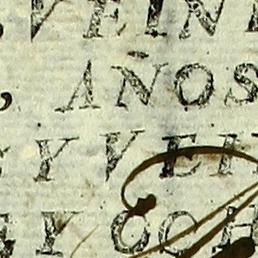 VEIN
, AÑOS
Y VEI
Y OCH